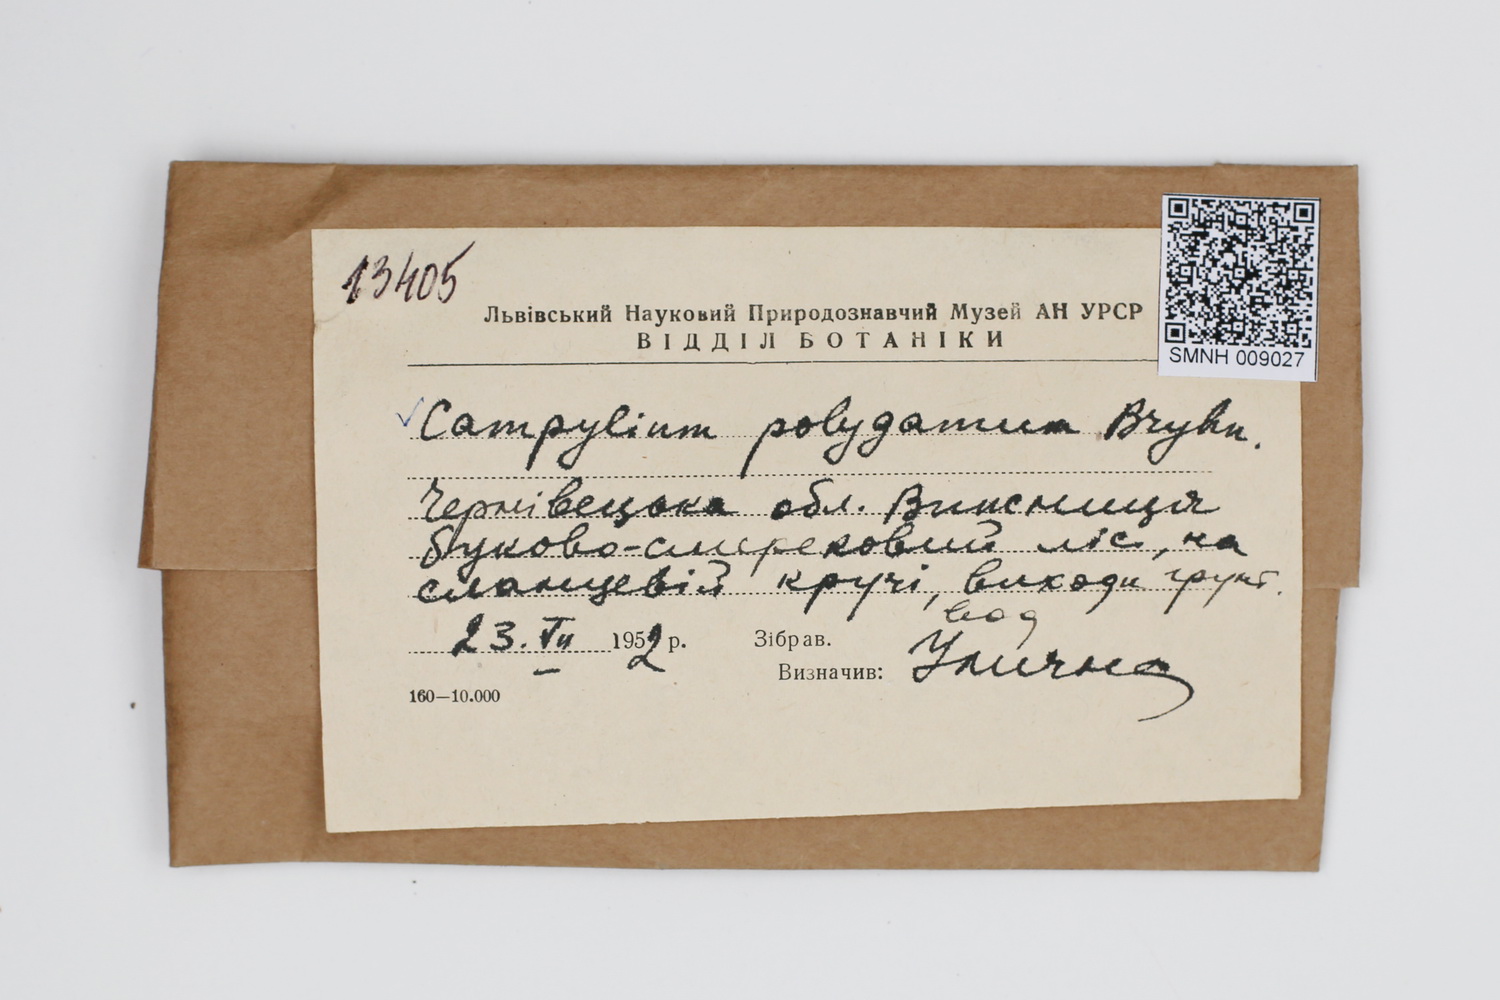 13405
Львівський Науковий Природознавчий Музей АН УРСР
ВІДДІЛ БОТАНІКИ
SMNH 009027
Campylium polygamum Bryhn.
Чернівецька обл. Вижниця
буково-смерековий ліс, на
сланцевій кручі, виходи грунт.
вод
23. VII 1952 р. Зібрав.
Визначив: Улична
160—10.000